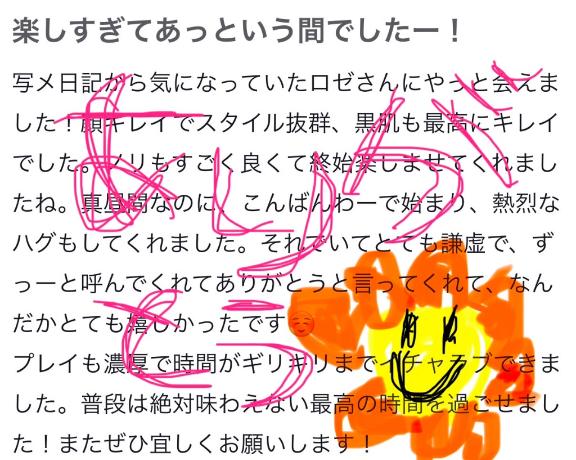 楽しすぎてあっという間でしたー！
写メ日記から気になっていたロゼさんにやっと会えま
した！顔キレイでスタイル抜群、黒肌も最高にキレイ
でした。ノリもすごく良くて終始楽しませてくれまし
たね。真昼間なのに、こんばんわーで始まり、熱烈な
ハグもしてくれました。それでいてとても謙虚で、ず
っーと呼んでくれてありがとうと言ってくれて、なん
だかとても嬉しかったです☺️
プレイも濃厚で時間がギリギリまでイチャラブできま
した。普段は絶対味わえない最高の時間を過ごせまし
た！またぜひ宜しくお願いします！
ありが
とう